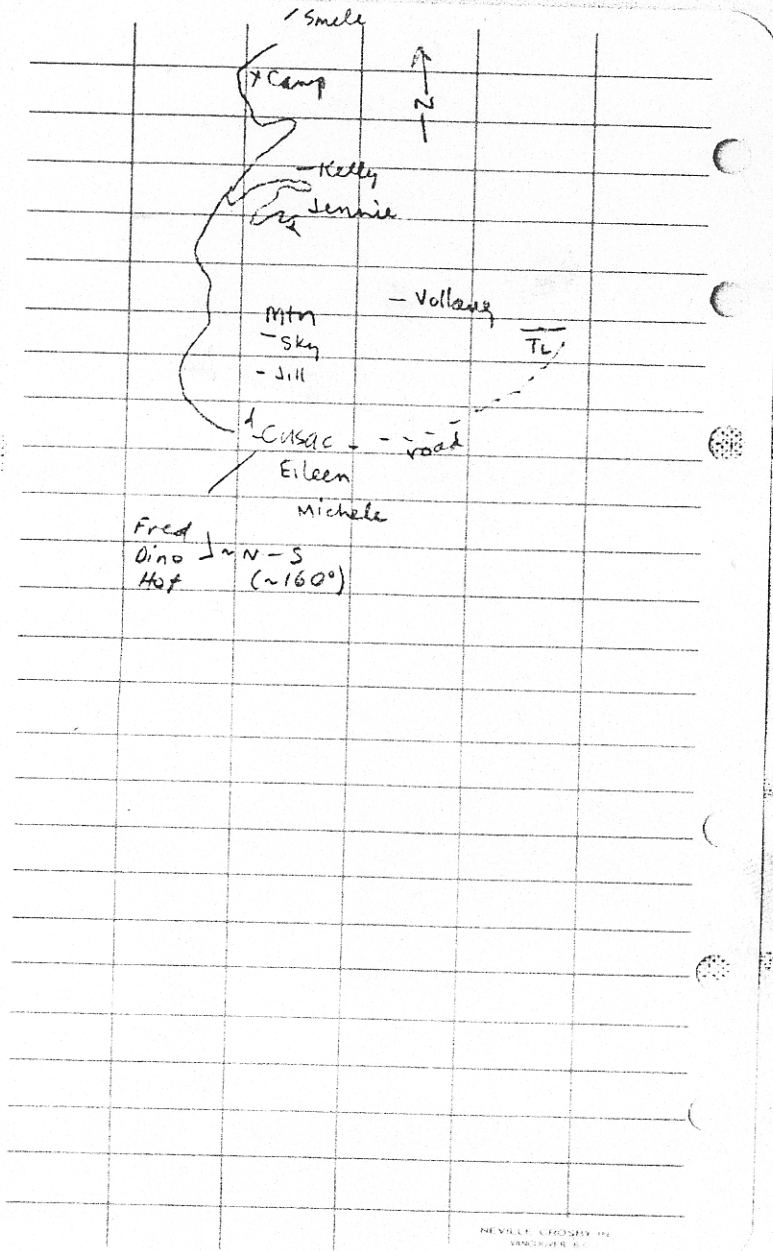 Smele
x Camp
N
- Kelly
Jennie
- Volloney
Mtn
- Sky
- Jill
TL
- Cusac - - - road
Eileen
Michele
Fred
Dino ~ N - S
Hot (~160°)
NEVILLE CROSBY IN
VANCOUVER B.C.